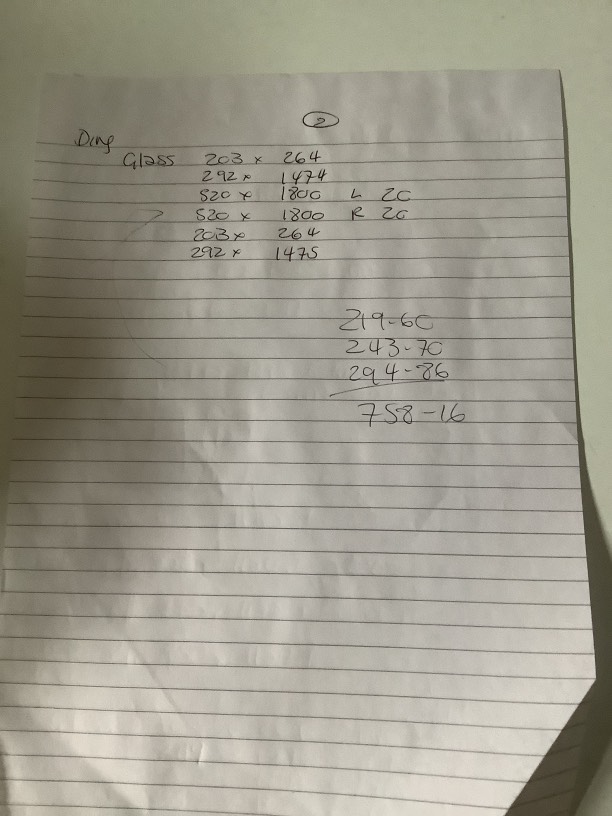 2
Ding
Glass 203 x 264
292 x 1474
520 x 1800 L 20
520 x 1800 R 20
203 x 264
292 x 1475
219-60
243-70
294-86
758-16